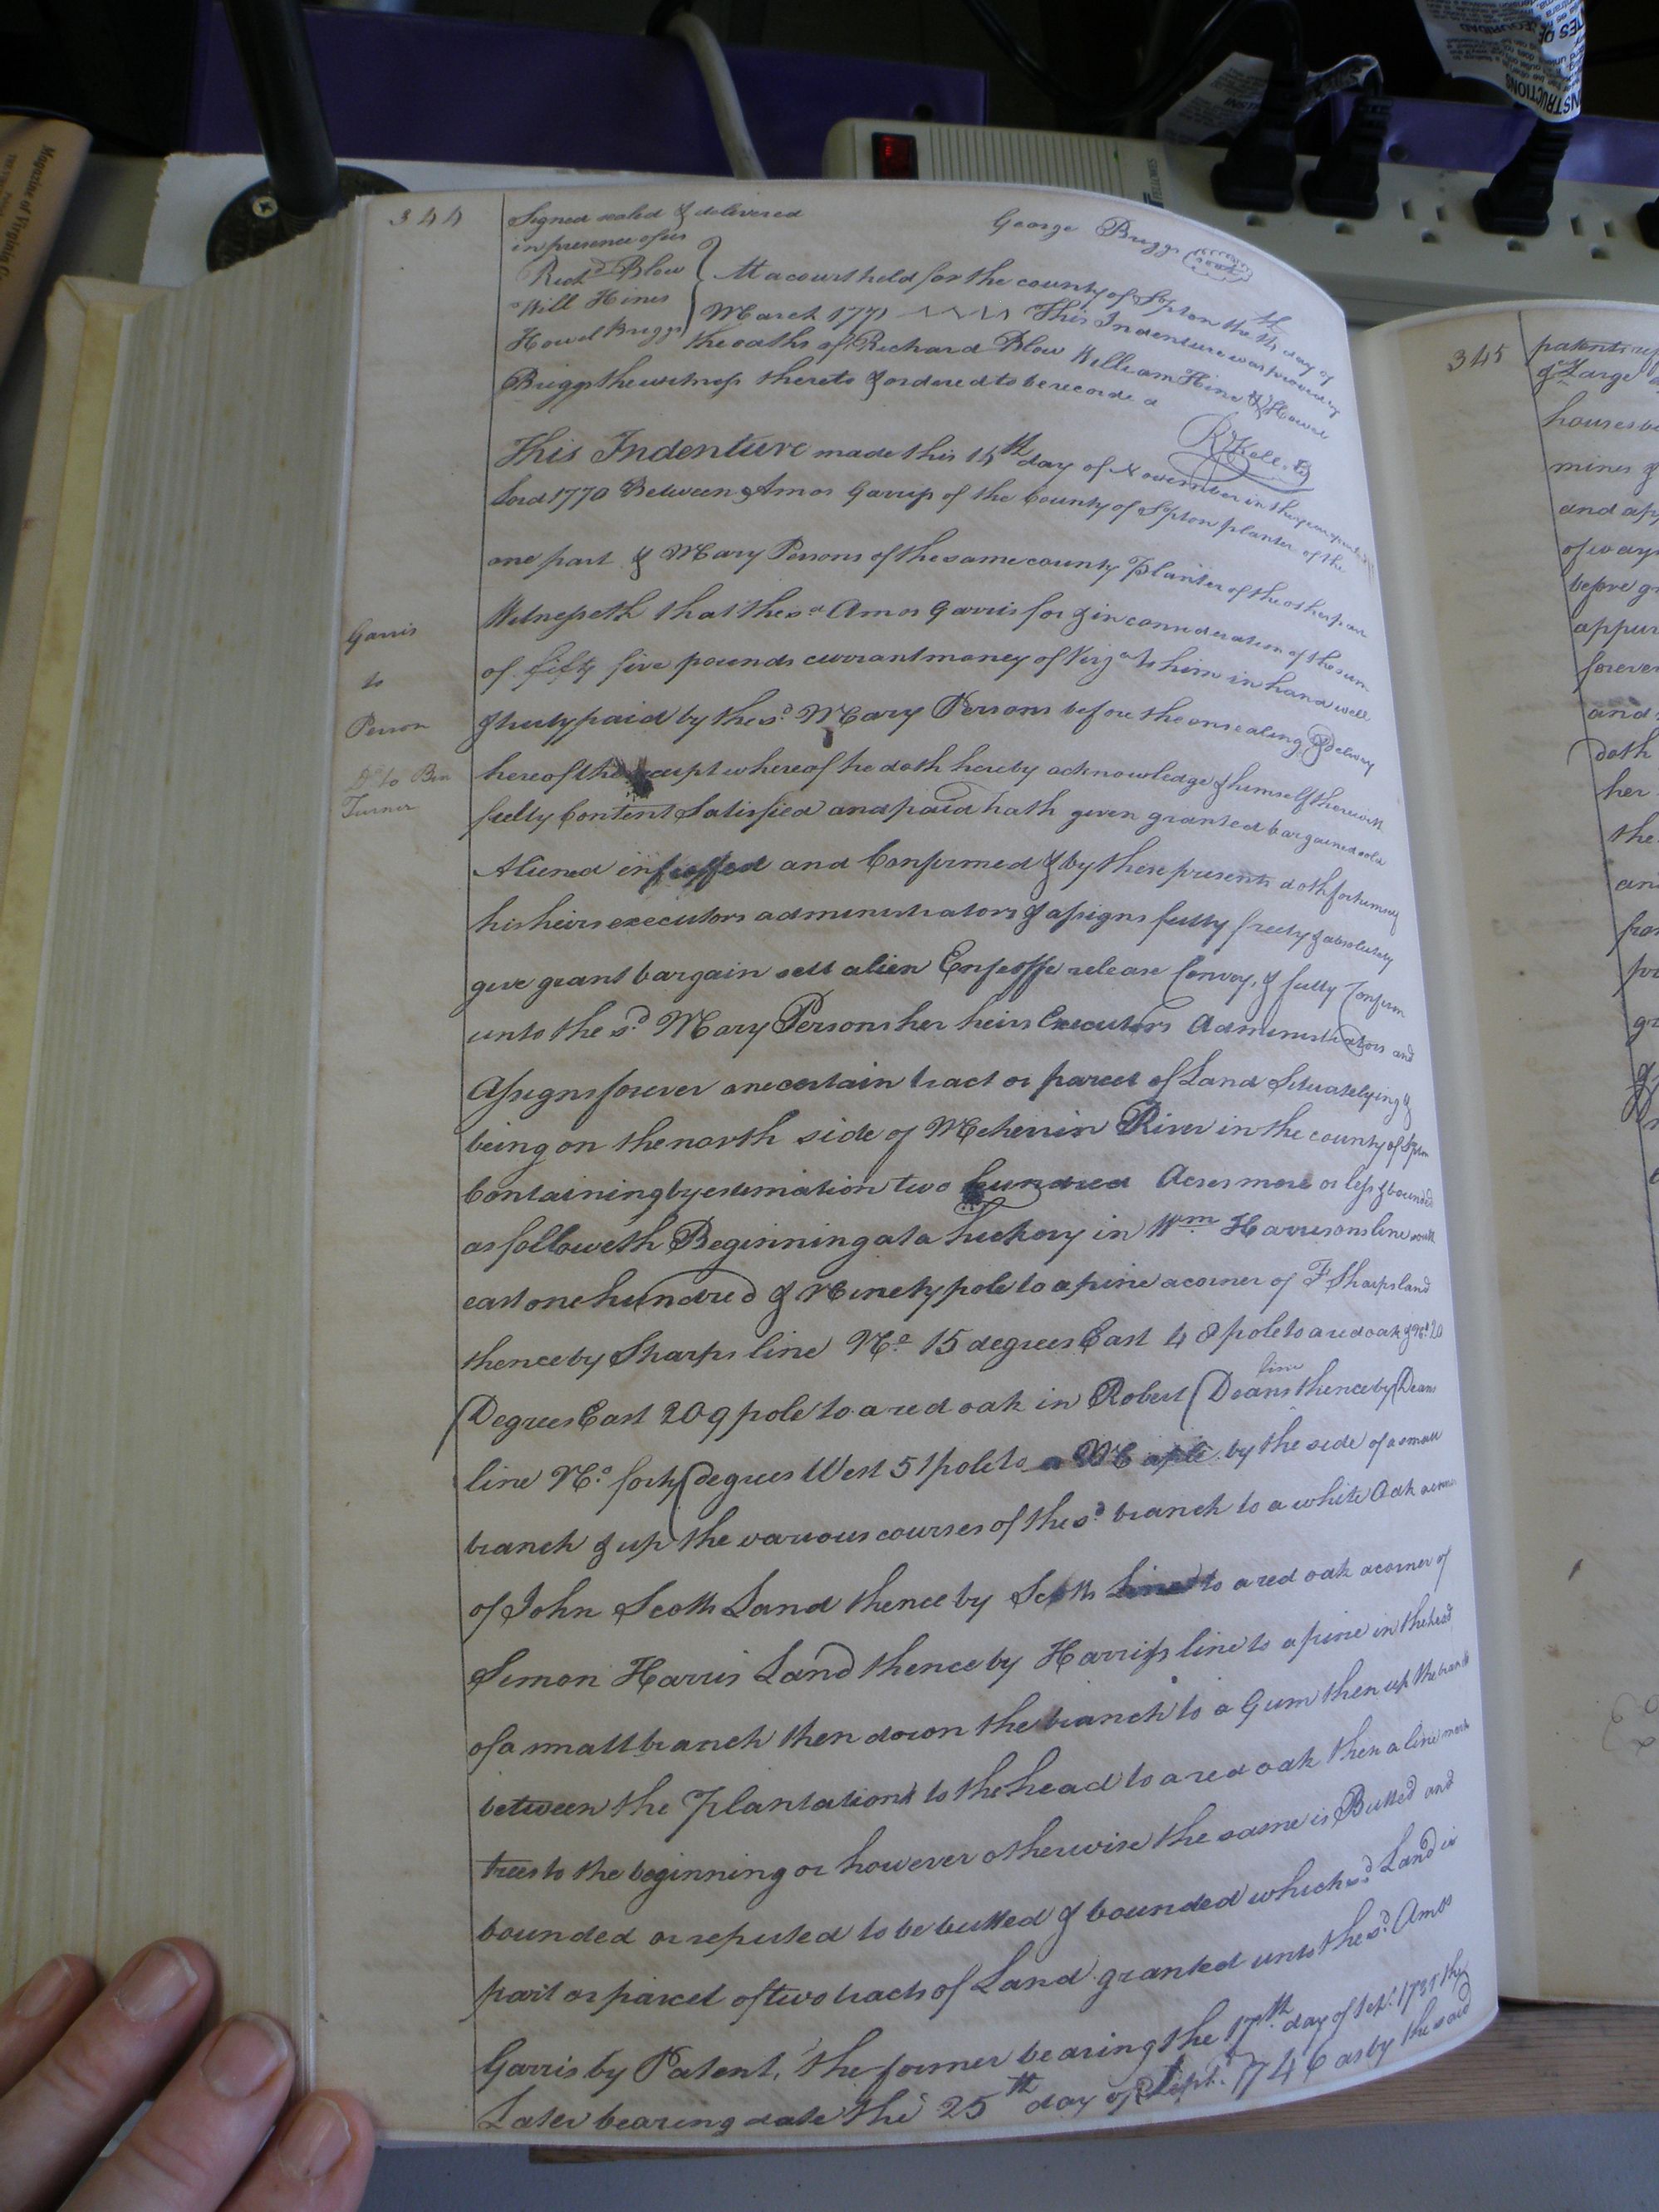 344
Signed sealed & delivered
in presence of us
George Briggs
seal
Richd Blow
Will Hines
Howel Briggs
At a court held for the county of S°pton the 14th day of
March 1771 This Indenture was proved by
the oaths of Richard Blow William Hines & Howel
Briggs the witness thereto & ordered to be recorded
This Indenture made this 15th day of November in the year
Lord 1770 Between Amos Garriss of the County of S°pton planter of the
one part & Mary Persons of the same county Planter of the other part
Witnesseth that the sd Amos Garris for & in consideration of the sum
of fifty five pounds currant money of Virga to him in hand well
& truly paid by the sd Mary Persons before the ensealing & delivery
hereof the receipt whereof he doth hereby acknowledge & himself therewith
fully Content Satisfied and paid hath given granted bargained sold
Aliened infeoffed and Confirmed & by these presents doth for himself
his heirs executors administrators & assigns fully freely & absolutely
give grant bargain sell alien Enfeoffe release Convey, & fully Confirm
unto the sd Mary Persons her heirs Executors Administrators and
Assigns forever one certain tract or parcel of Land Situate lying &
being on the north side of Meherrin River in the county of S°pton
Containing by estimation two hundred Acres more or less & bounded
as followeth Beginning at a hickory in Wm Harrisons line south
east one hundred & Ninety pole to a pine a corner of F Sharps land
thence by Sharps line No 15 degrees East 48 pole to a red oak & No 20
Degrees East 209 pole to a red oak in Robert Deans line thence by Deans
line No forty degrees West 51 pole to a Maple by the side of a small
branch & up the various courses of the sd branch to a white Oak corner
of John Scotts Land thence by Scotts Line to a red oak a corner of
Simon Harris Land thence by Harriss line to a pine in the head
of a small branch then down the branch to a Gum then up the branch
between the Plantations to the head to a red oak then a line mark
trees to the beginning or however otherwise the same is Butted and
bounded or reputed to be butted & bounded which sd Land is
part or parcel of two tracts of Land granted unto the sd Amos
Garris by Patent, the former bearing the 17th day of Sept. 1731 the
Later bearing date the 25th day of Sept. 1746 as by the said
Garris
to
Person
Do to Ben
Turner
345
patents
& Large
houses
mines &
and app
of way
before
appur
forever
and
doth
her
the
FELLOWES
INSTRUCTIONS
Magazine of Virginia